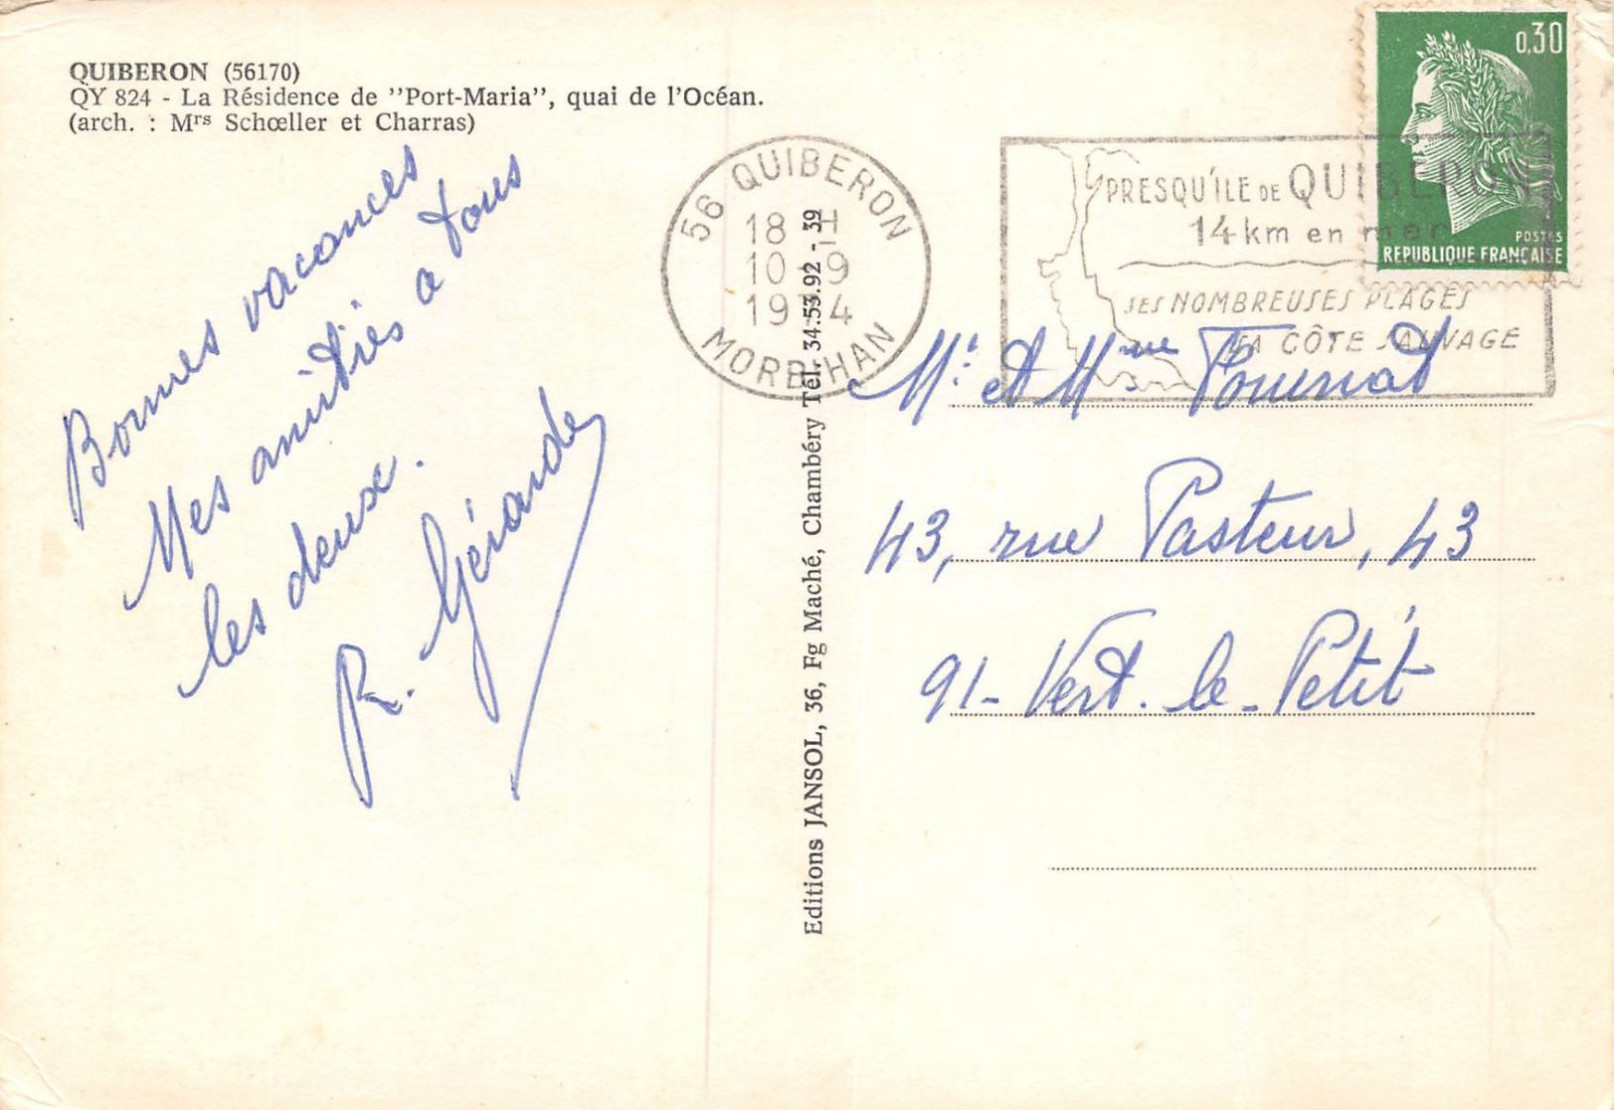 QUIBERON (56170)
QY 824 - La Résidence de "Port-Maria", quai de l'Océan.
(arch. : Mrs Schœller et Charras)
Bonnes vacances
Mes amitiés a tous
les deux.
R. Gérard
56 QUIBERON
18 H
10 - 9
19 4
MORBIHAN
PRESQU'ÎLE DE QUIBERON
14 km en mer
SES NOMBREUSES PLAGES
SA CÔTE SAUVAGE
0,30
POSTES
REPUBLIQUE FRANÇAISE
Editions JANSOL, 36, Fg Maché, Chambéry Tél. 34.53.92 - 39
Mr et Mme
43, rue Pasteur, 43
91 - Vert-le-Petit